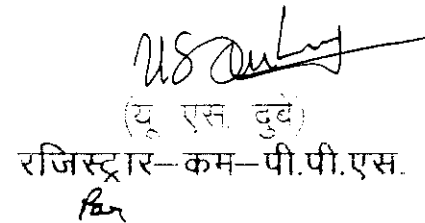 (यू एस. दुबे)
रजिस्ट्रार–कम–पी.पी.एस.